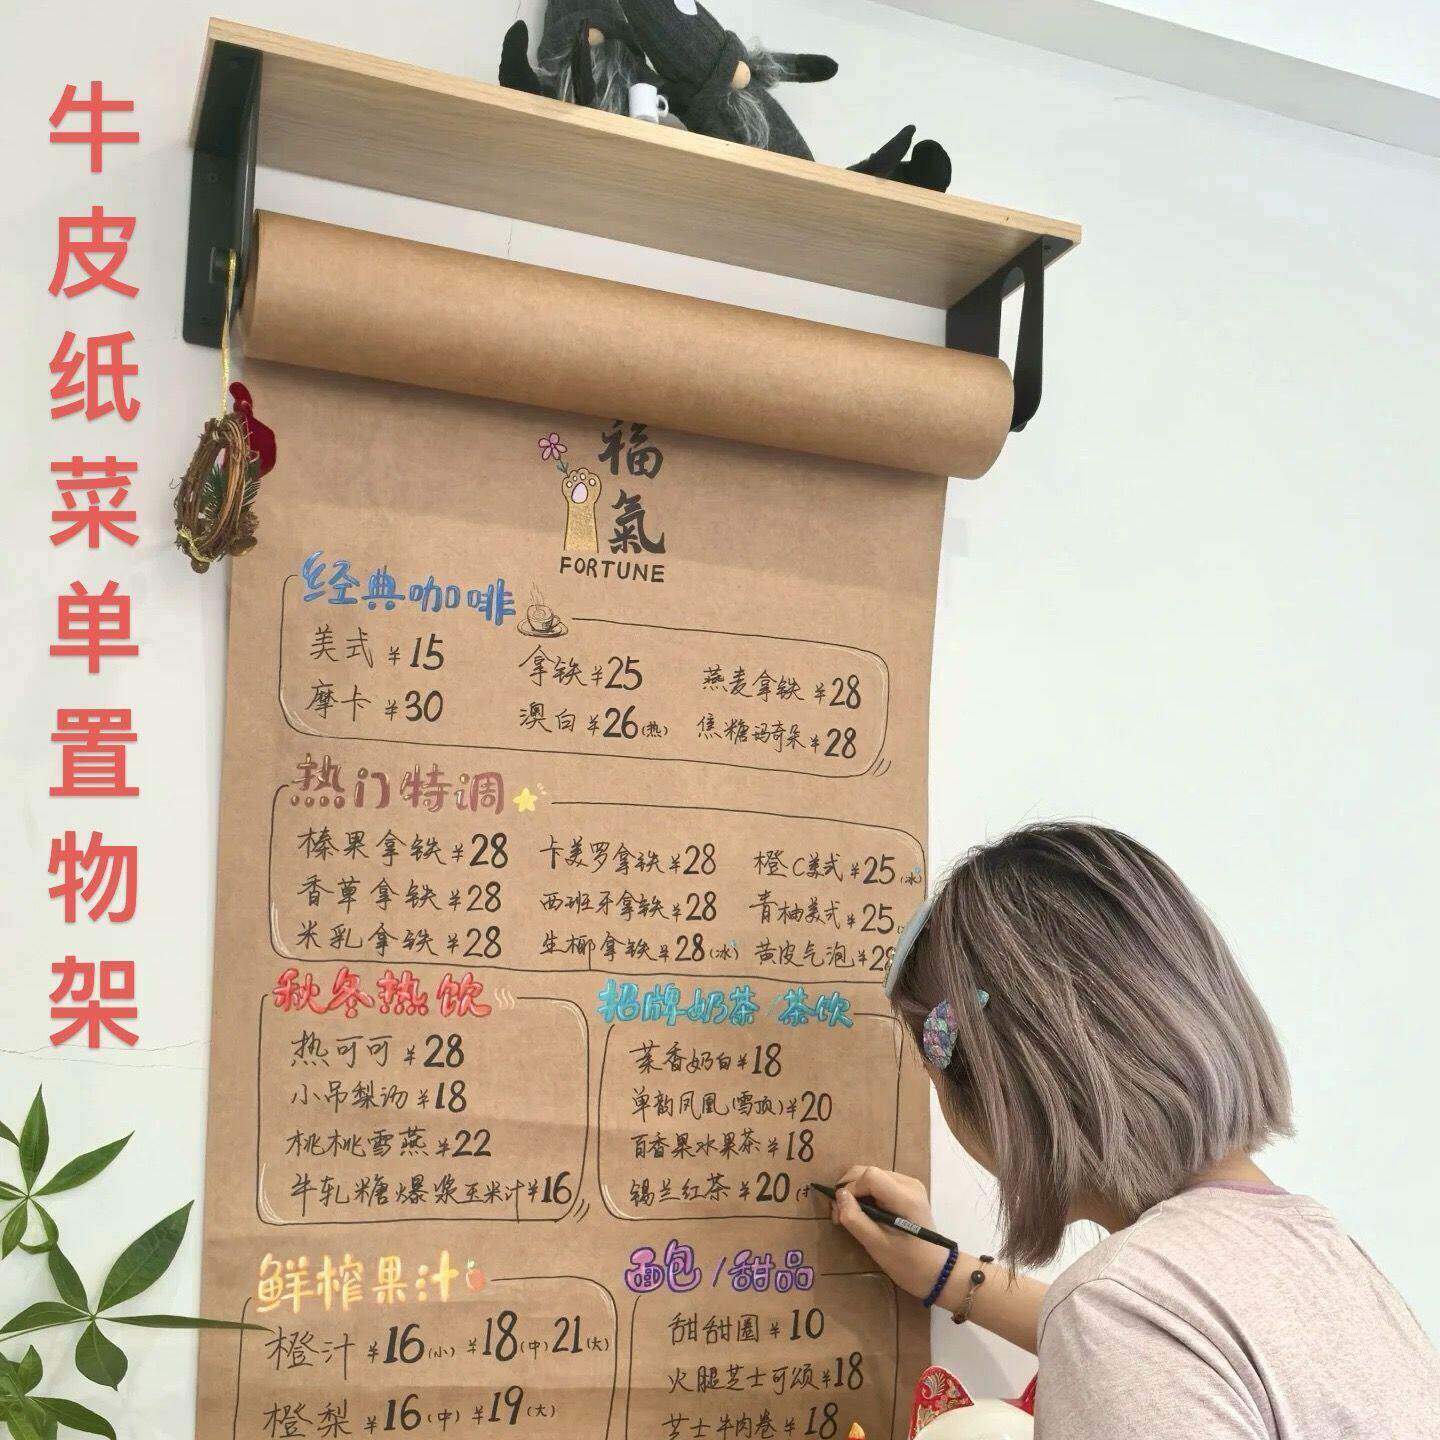 牛皮纸菜单置物架
福
氣
FORTUNE
经典咖啡
美式 ¥15
拿铁 ¥25
燕麦拿铁 ¥28
摩卡 ¥30
澳白 ¥26(热)
焦糖玛奇朵 ¥28
热门特调
榛果拿铁 ¥28
卡美罗拿铁 ¥28
橙C美式 ¥25(冰)
香草拿铁 ¥28
西班牙拿铁 ¥28
青柚美式 ¥25
米乳拿铁 ¥28
生椰拿铁 ¥28(冰)
黄皮气泡 ¥28
秋冬热饮
热可可 ¥28
小吊梨汤 ¥18
桃桃雪燕 ¥22
牛轧糖爆浆玉米汁 ¥16
招牌奶茶/茶饮
茉香奶白 ¥18
单韵凤凰(雪顶) ¥20
百香果水果茶 ¥18
锡兰红茶 ¥20
鲜榨果汁
橙汁 ¥16(小) ¥18(中) 21(大)
橙梨 ¥16(中) ¥19(大)
面包/甜品
甜甜圈 ¥10
火腿芝士可颂 ¥18
芝士牛肉卷 ¥18